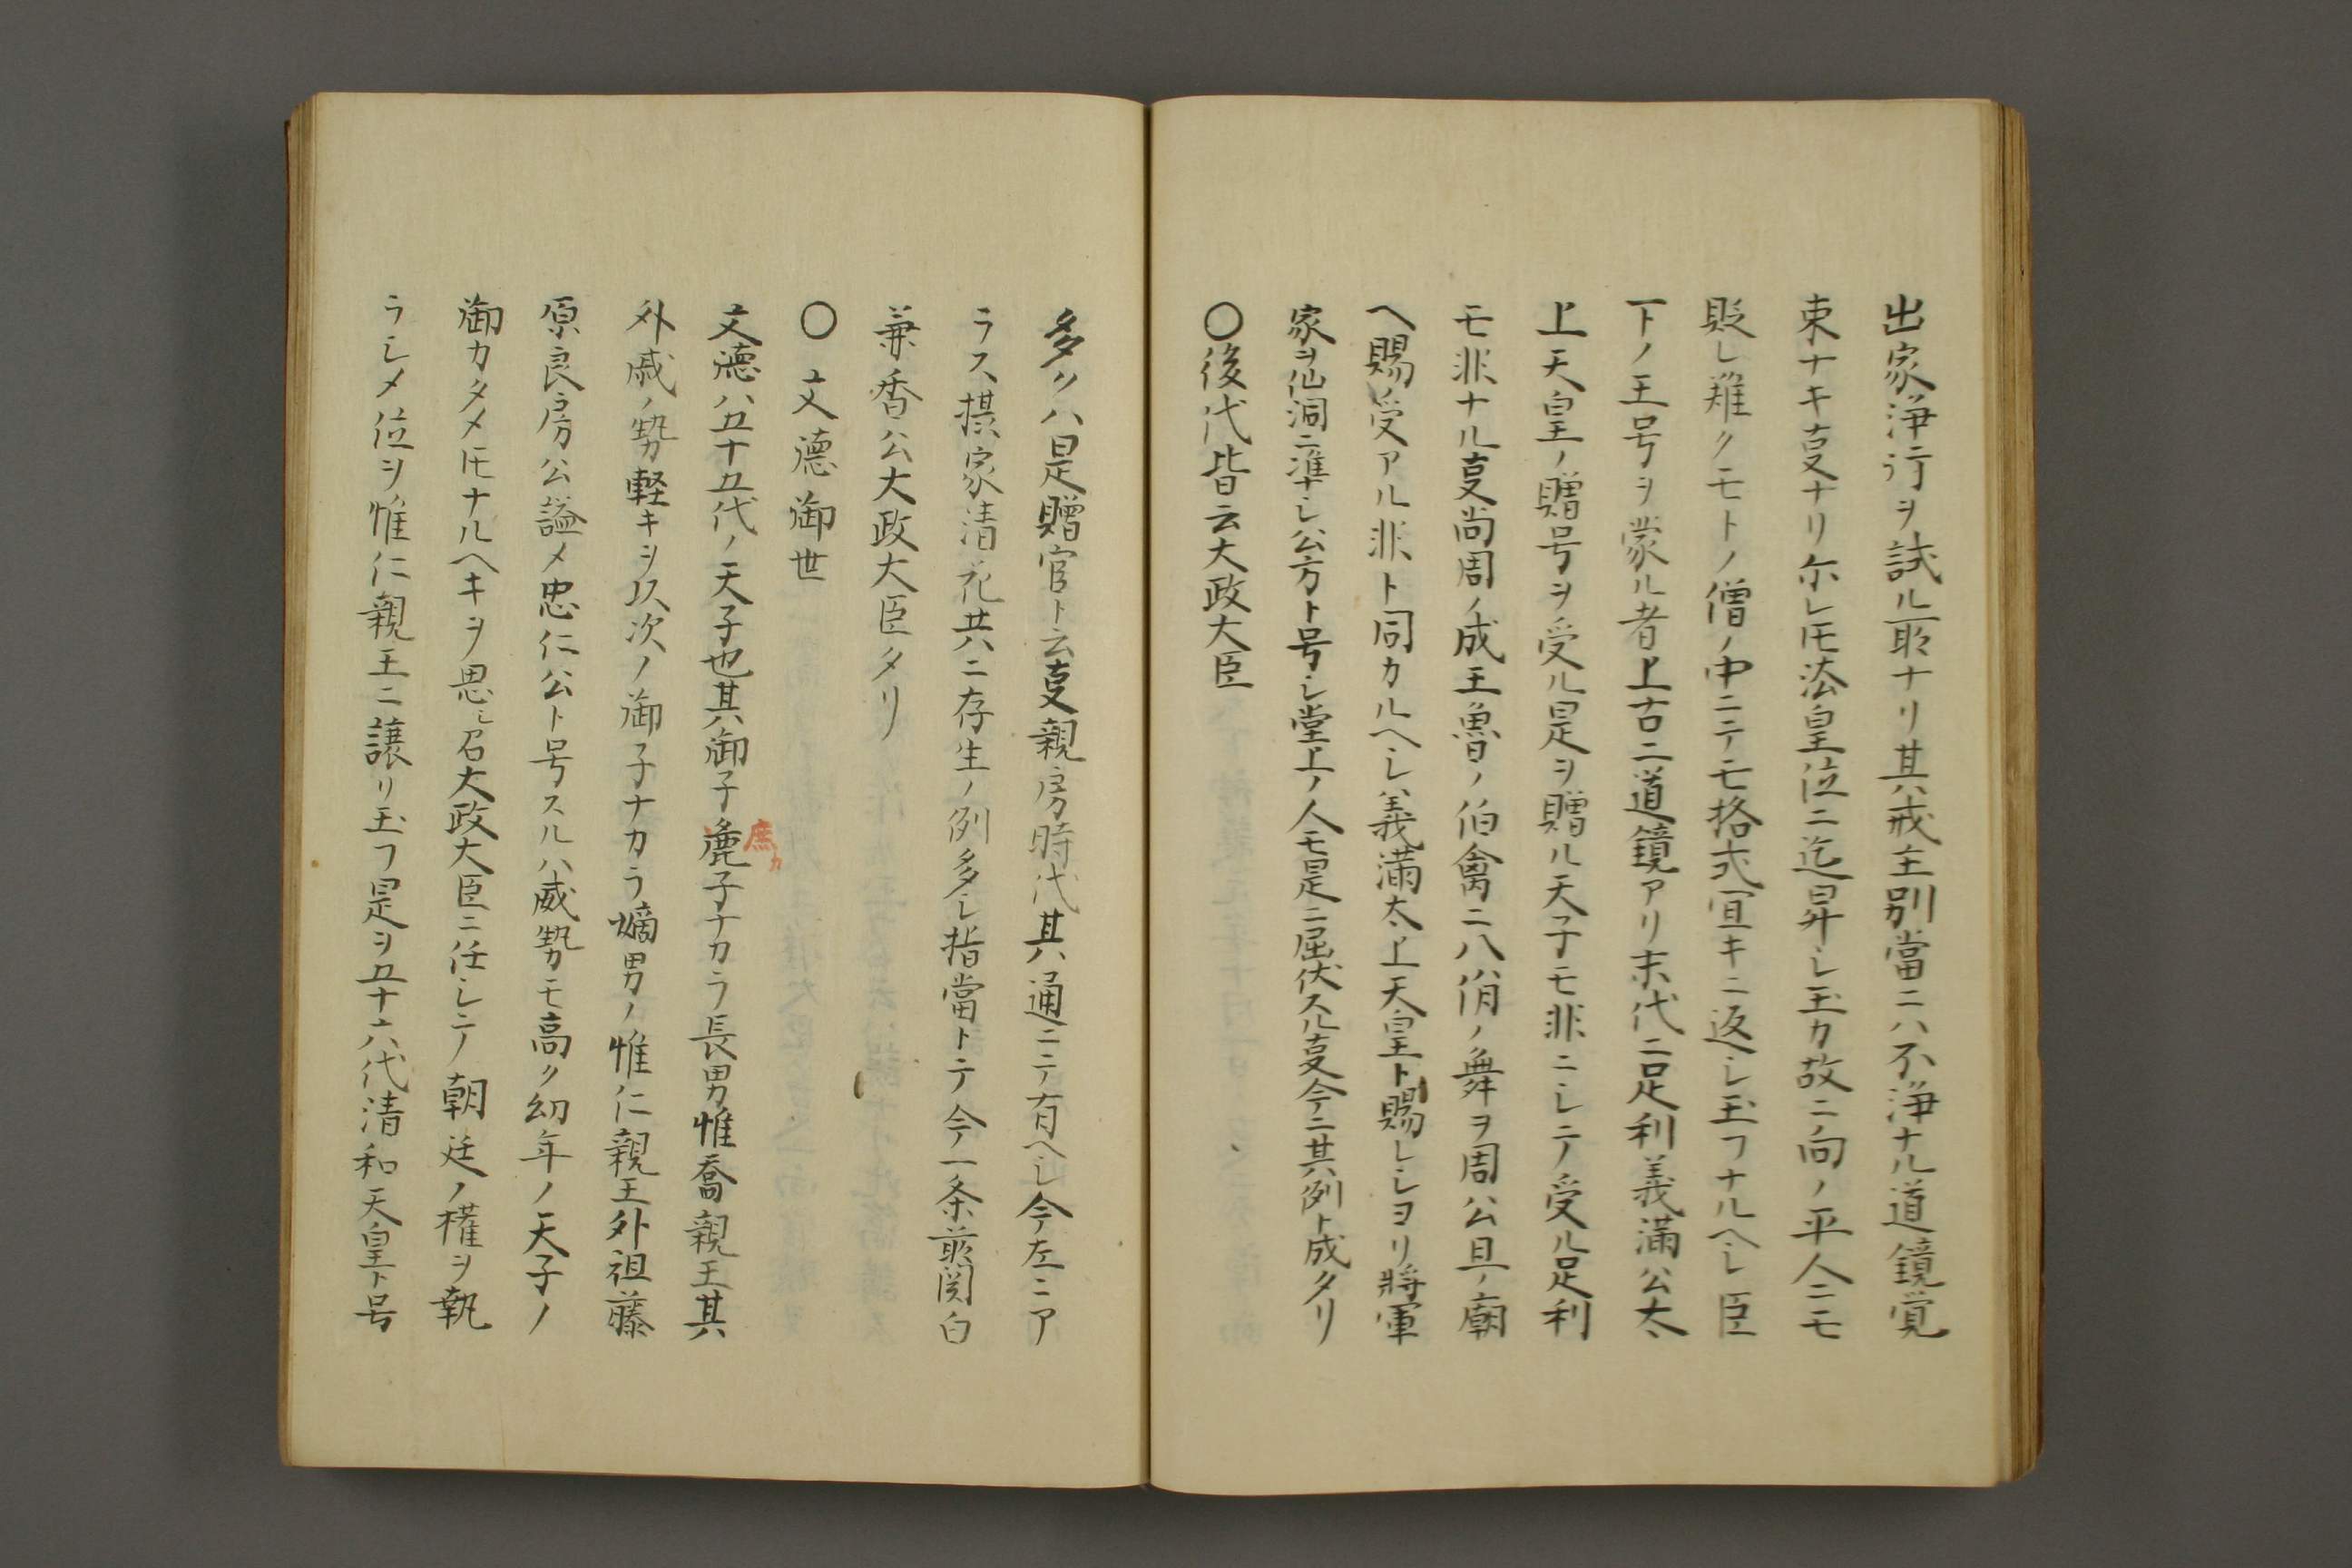 出家浄行ヲ試ル耶ナリ其戒主別當ニハ不浄ナル道鏡覚
束ナキ夏ナリ尓レ𪜈法皇位ニ迄昇シ玉カ故ニ向ノ平人ニモ
貶シ難クモトノ僧ノ中ニテモ格式宜キニ返シ玉フナルヘシ臣
下ノ王号ヲ蒙ル者上古ニ道鏡アリ末代ニ足利義満公太
上天皇ノ贈号ヲ受ル是ヲ贈ル天子モ非ニシテ受ル足利
モ非ナル夏尚周ノ成王魯ノ伯禽ニ八佾ノ舞ヲ周公旦ノ廟
ヘ賜ノ受アル非ト同カルヘシ義満太上天皇ト賜シシヨリ將軍
家ヲ仙洞ニ準シ公方ト号シ堂上ノ人モ是ニ屈伏スル夏今ニ其例ト成タリ
〇後代皆云大政大臣
多クハ是贈官ト云夏親房時代其通ニテ有ヘシ今左ニア
ラス摂家清花共ニ存生ノ例多シ指當トテ今ノ一条前関白
兼香公大政大臣タリ
〇文徳御世
文徳ハ五十五代ノ天子也其御子麁子ナカラ長男惟喬親王其
庶カ
外戚ノ勢軽キヲ以次ノ御子ナカラ嫡男ノ惟仁親王外祖藤
原良房公謚メ忠仁公ト号スルハ威勢モ高ク幼年ノ天子ノ
御カタメ𪜈ナルヘキヲ思シ召大政大臣ニ任シテ朝廷ノ権ヲ執
ラシメ位ヲ惟仁親王ニ譲リ玉フ是ヲ五十六代清和天皇ト号